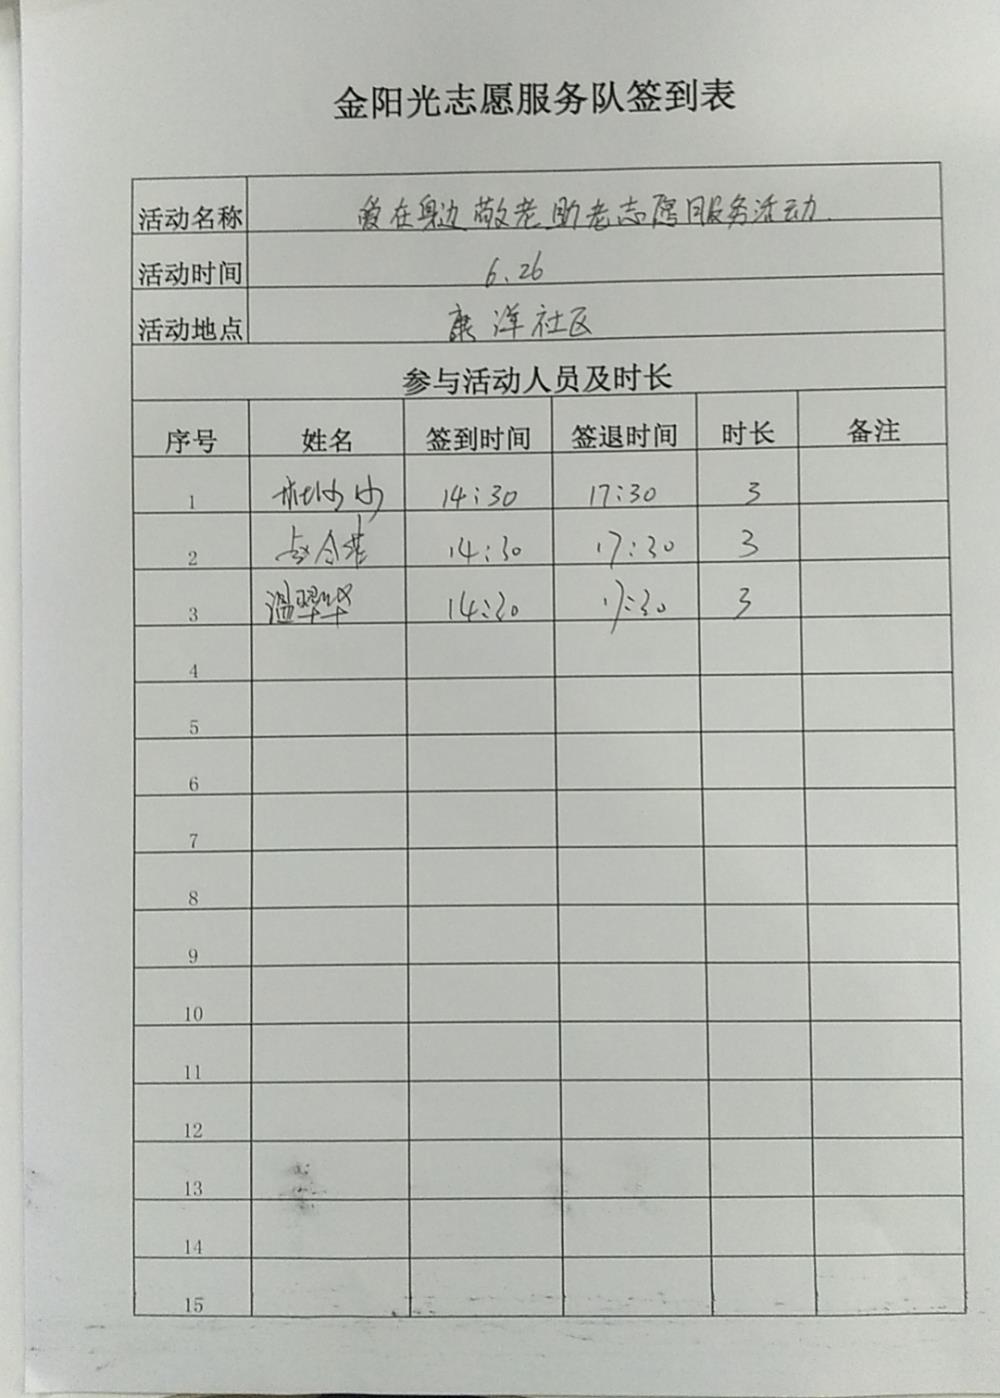 金阳光志愿服务队签到表
活动名称 爱在身边敬老助老志愿服务活动.
活动时间 6.26
活动地点 康洋社区
参与活动人员及时长
序号 姓名 签到时间 签退时间 时长 备注
1 杜沙沙 14:30 17:30 3
2 14:30 17:30 3
3 温翠华 14:30 17:30 3
4
5
6
7
8
9
10
11
12
13
14
15